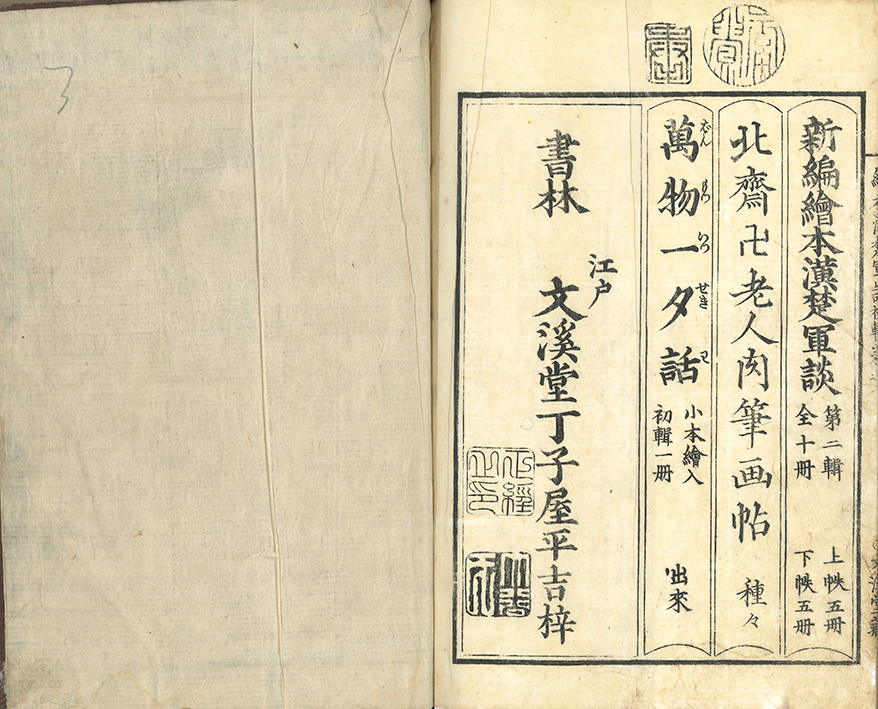 新編繪本漢楚軍談
第二輯
全十冊
上帙五冊
下帙五冊
北齋卍老人肉筆画帖
種々
萬物一夕話
ばんもついつせきわ
小本繪入
初輯一册
出來
書林
江戸
文溪堂丁子屋平吉梓